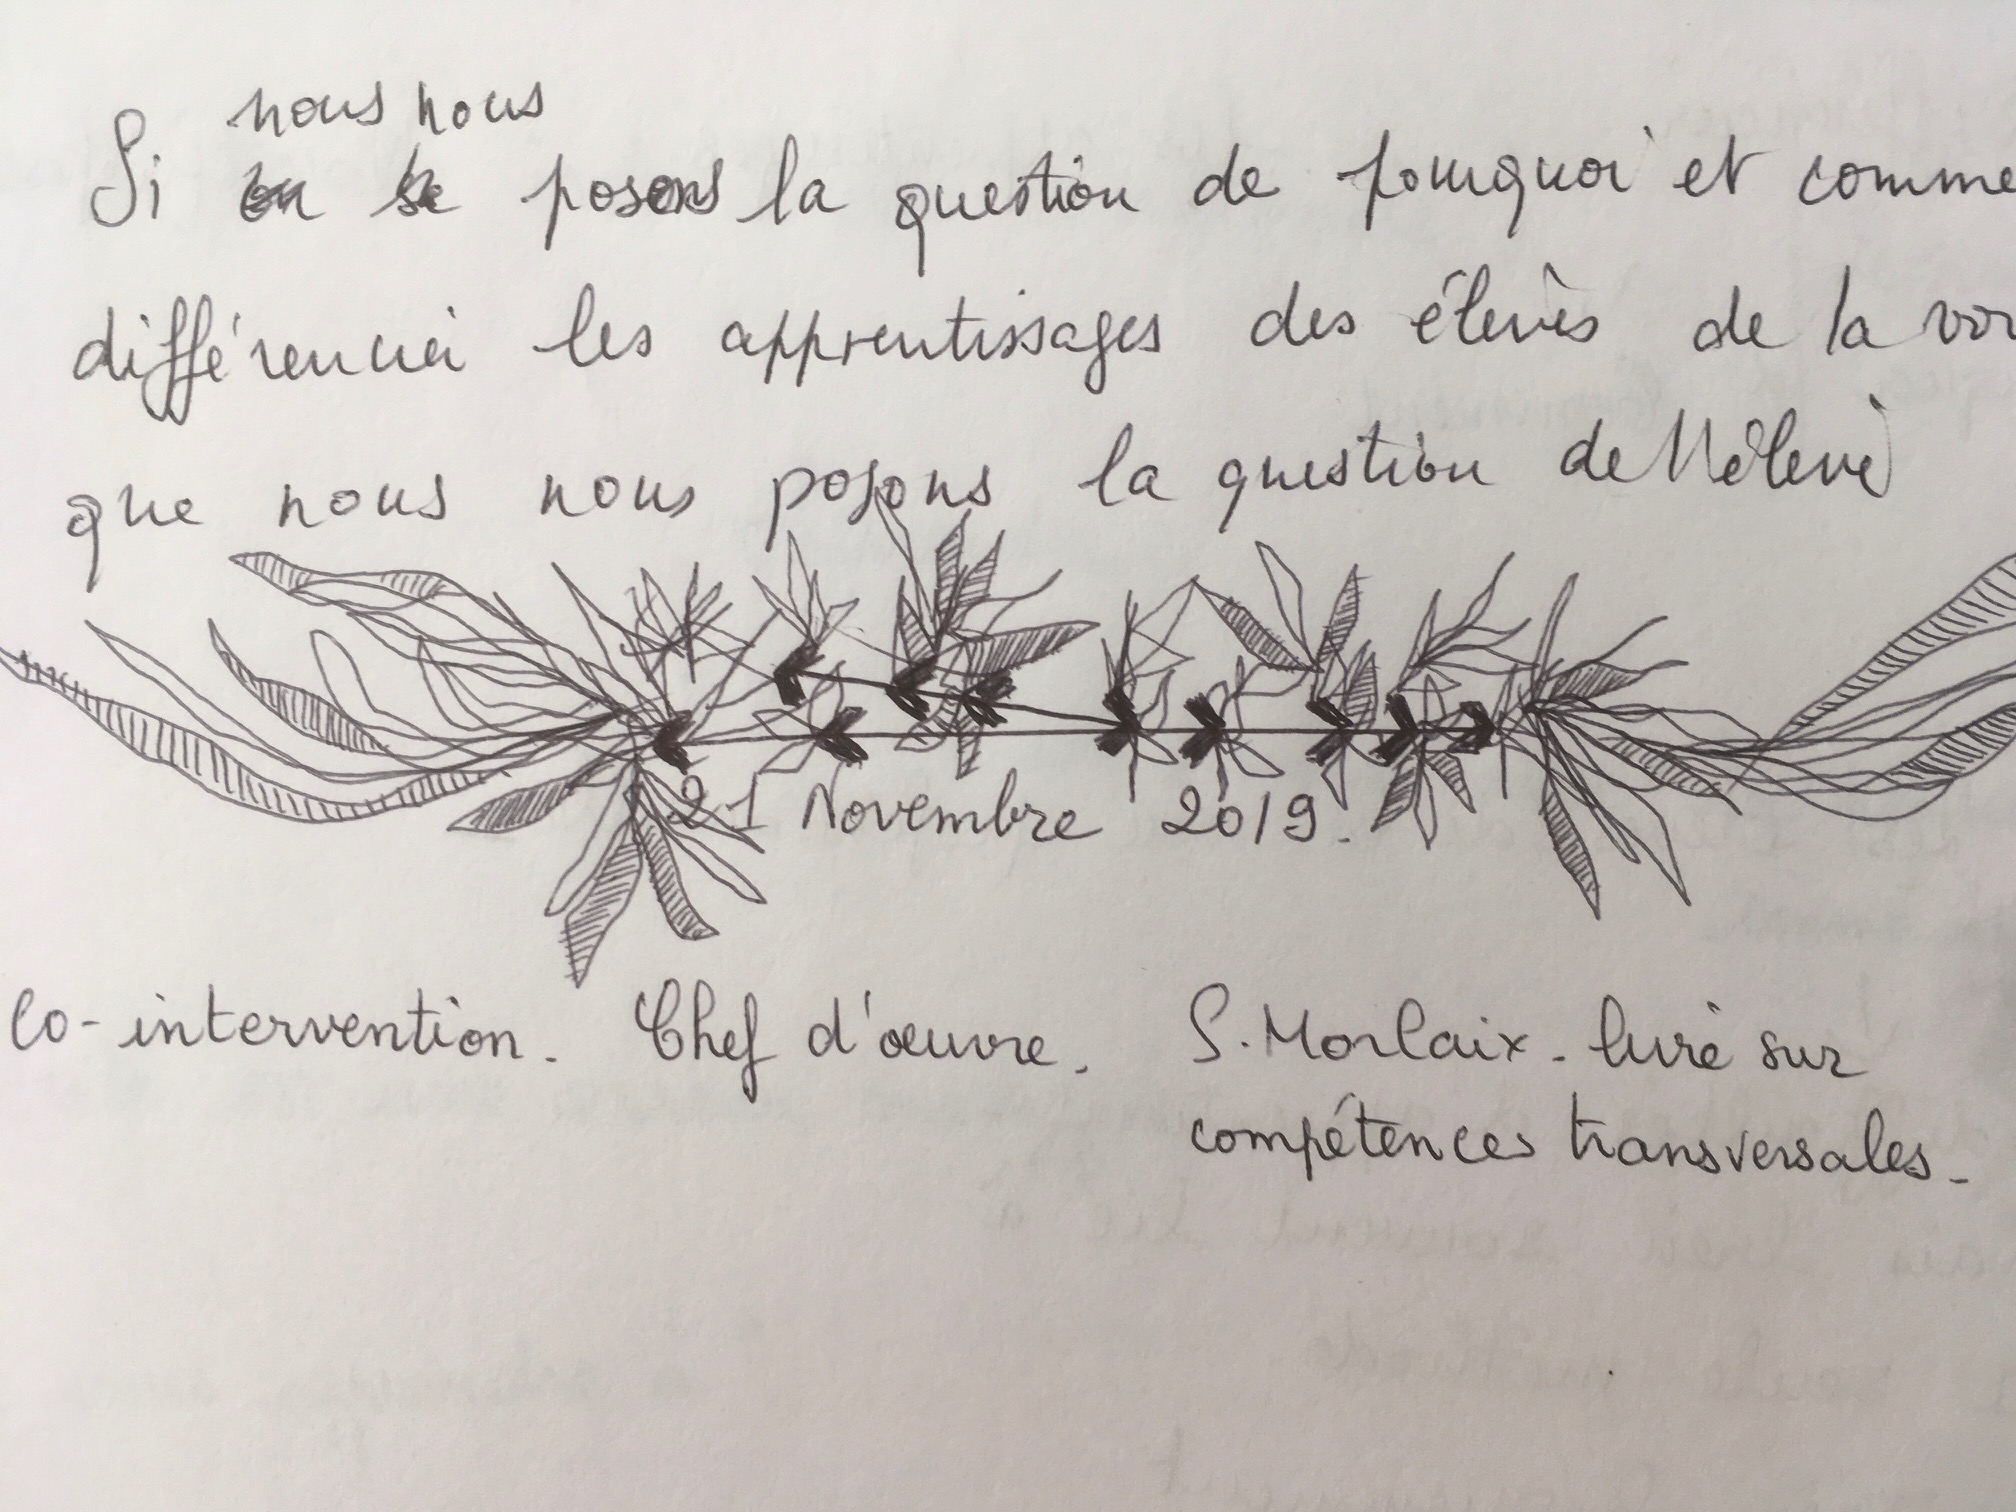 nous nous
Si on se posons la question de pourquoi et comme
différencier les apprentissages des élèves de la voi
que nous nous posons la question de l'élève
21 Novembre 2019.
Co-intervention. Chef d'œuvre. S. Morlaix - livre sur
compétences transversales -